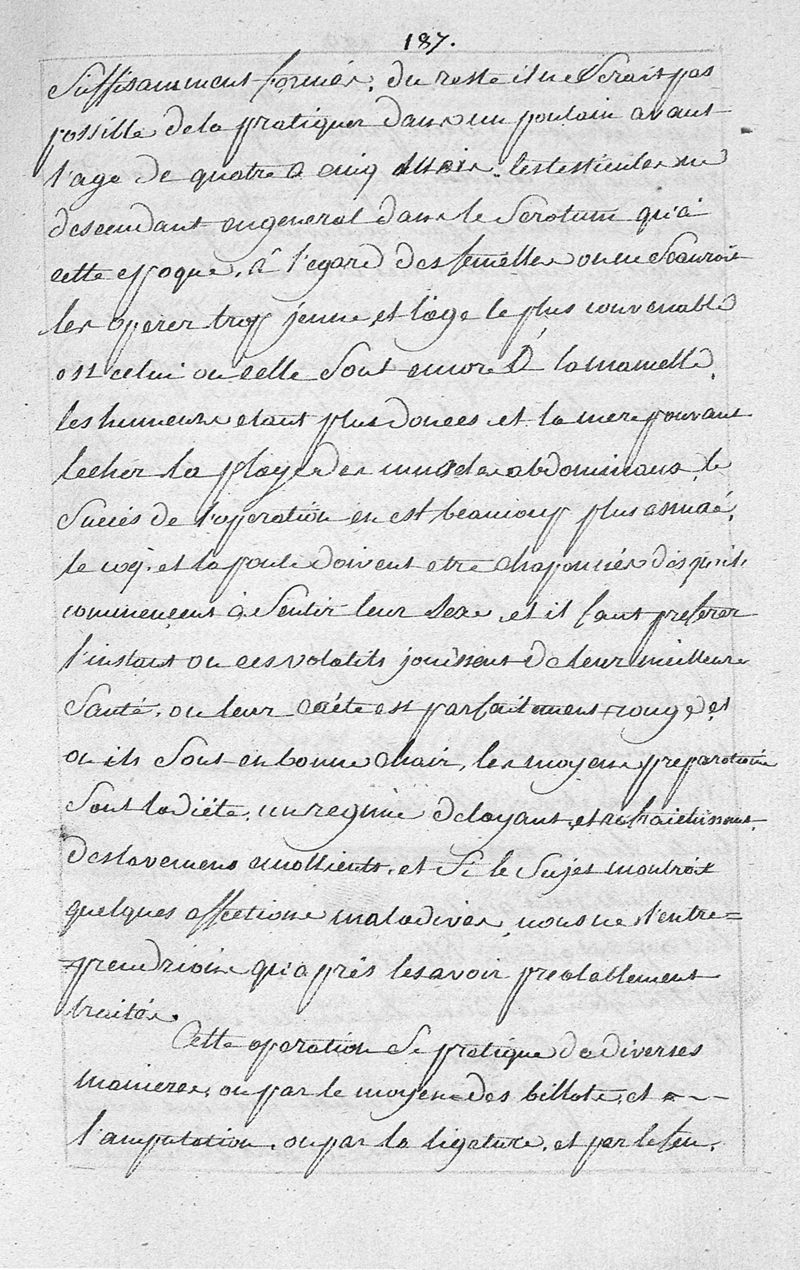 187.
Suffisamment formés, du reste il ne Serait pas
possible de la pratiquer dans un poulain avant
l'age de quatre a cinq mois, les testicules ne
descendant en general dans le Scrotum qu'a
cette epoque, à l'egard des femelles on ne Scauroit
les operer trop jeune, et l'age le plus convenable
est celui ou celle Sont encore à la mamelle,
les humeurs etant plus douces et la mere pouvant
lecher la playe des muscles abdominaux, le
Succès de l'operation en est beaucoup plus assuré,
le coq, et la poule doivent etre chaponnés des qu'ils
commencent à Sentir leur Sexe, et il faut preferer
l'instant ou ces volatils jouissent de leur meilleure
Santé, ou leur crète est parfaitement rouge, et
ou ils Sont en bonne chair, les moyens preparatoire
Sont la diéte, un regime delayant, et rafraichissant,
des lavemens emollients, et Si le Sujet montroit
quelques affections maladives, nous ne l'entre=
=prendrions qu'après les avoir prealablement
traités.
Cette operation Se pratique de diverses
manieres, ou par le moyen des billots, et a
l'amputation, ou par la ligature, et par le feu,